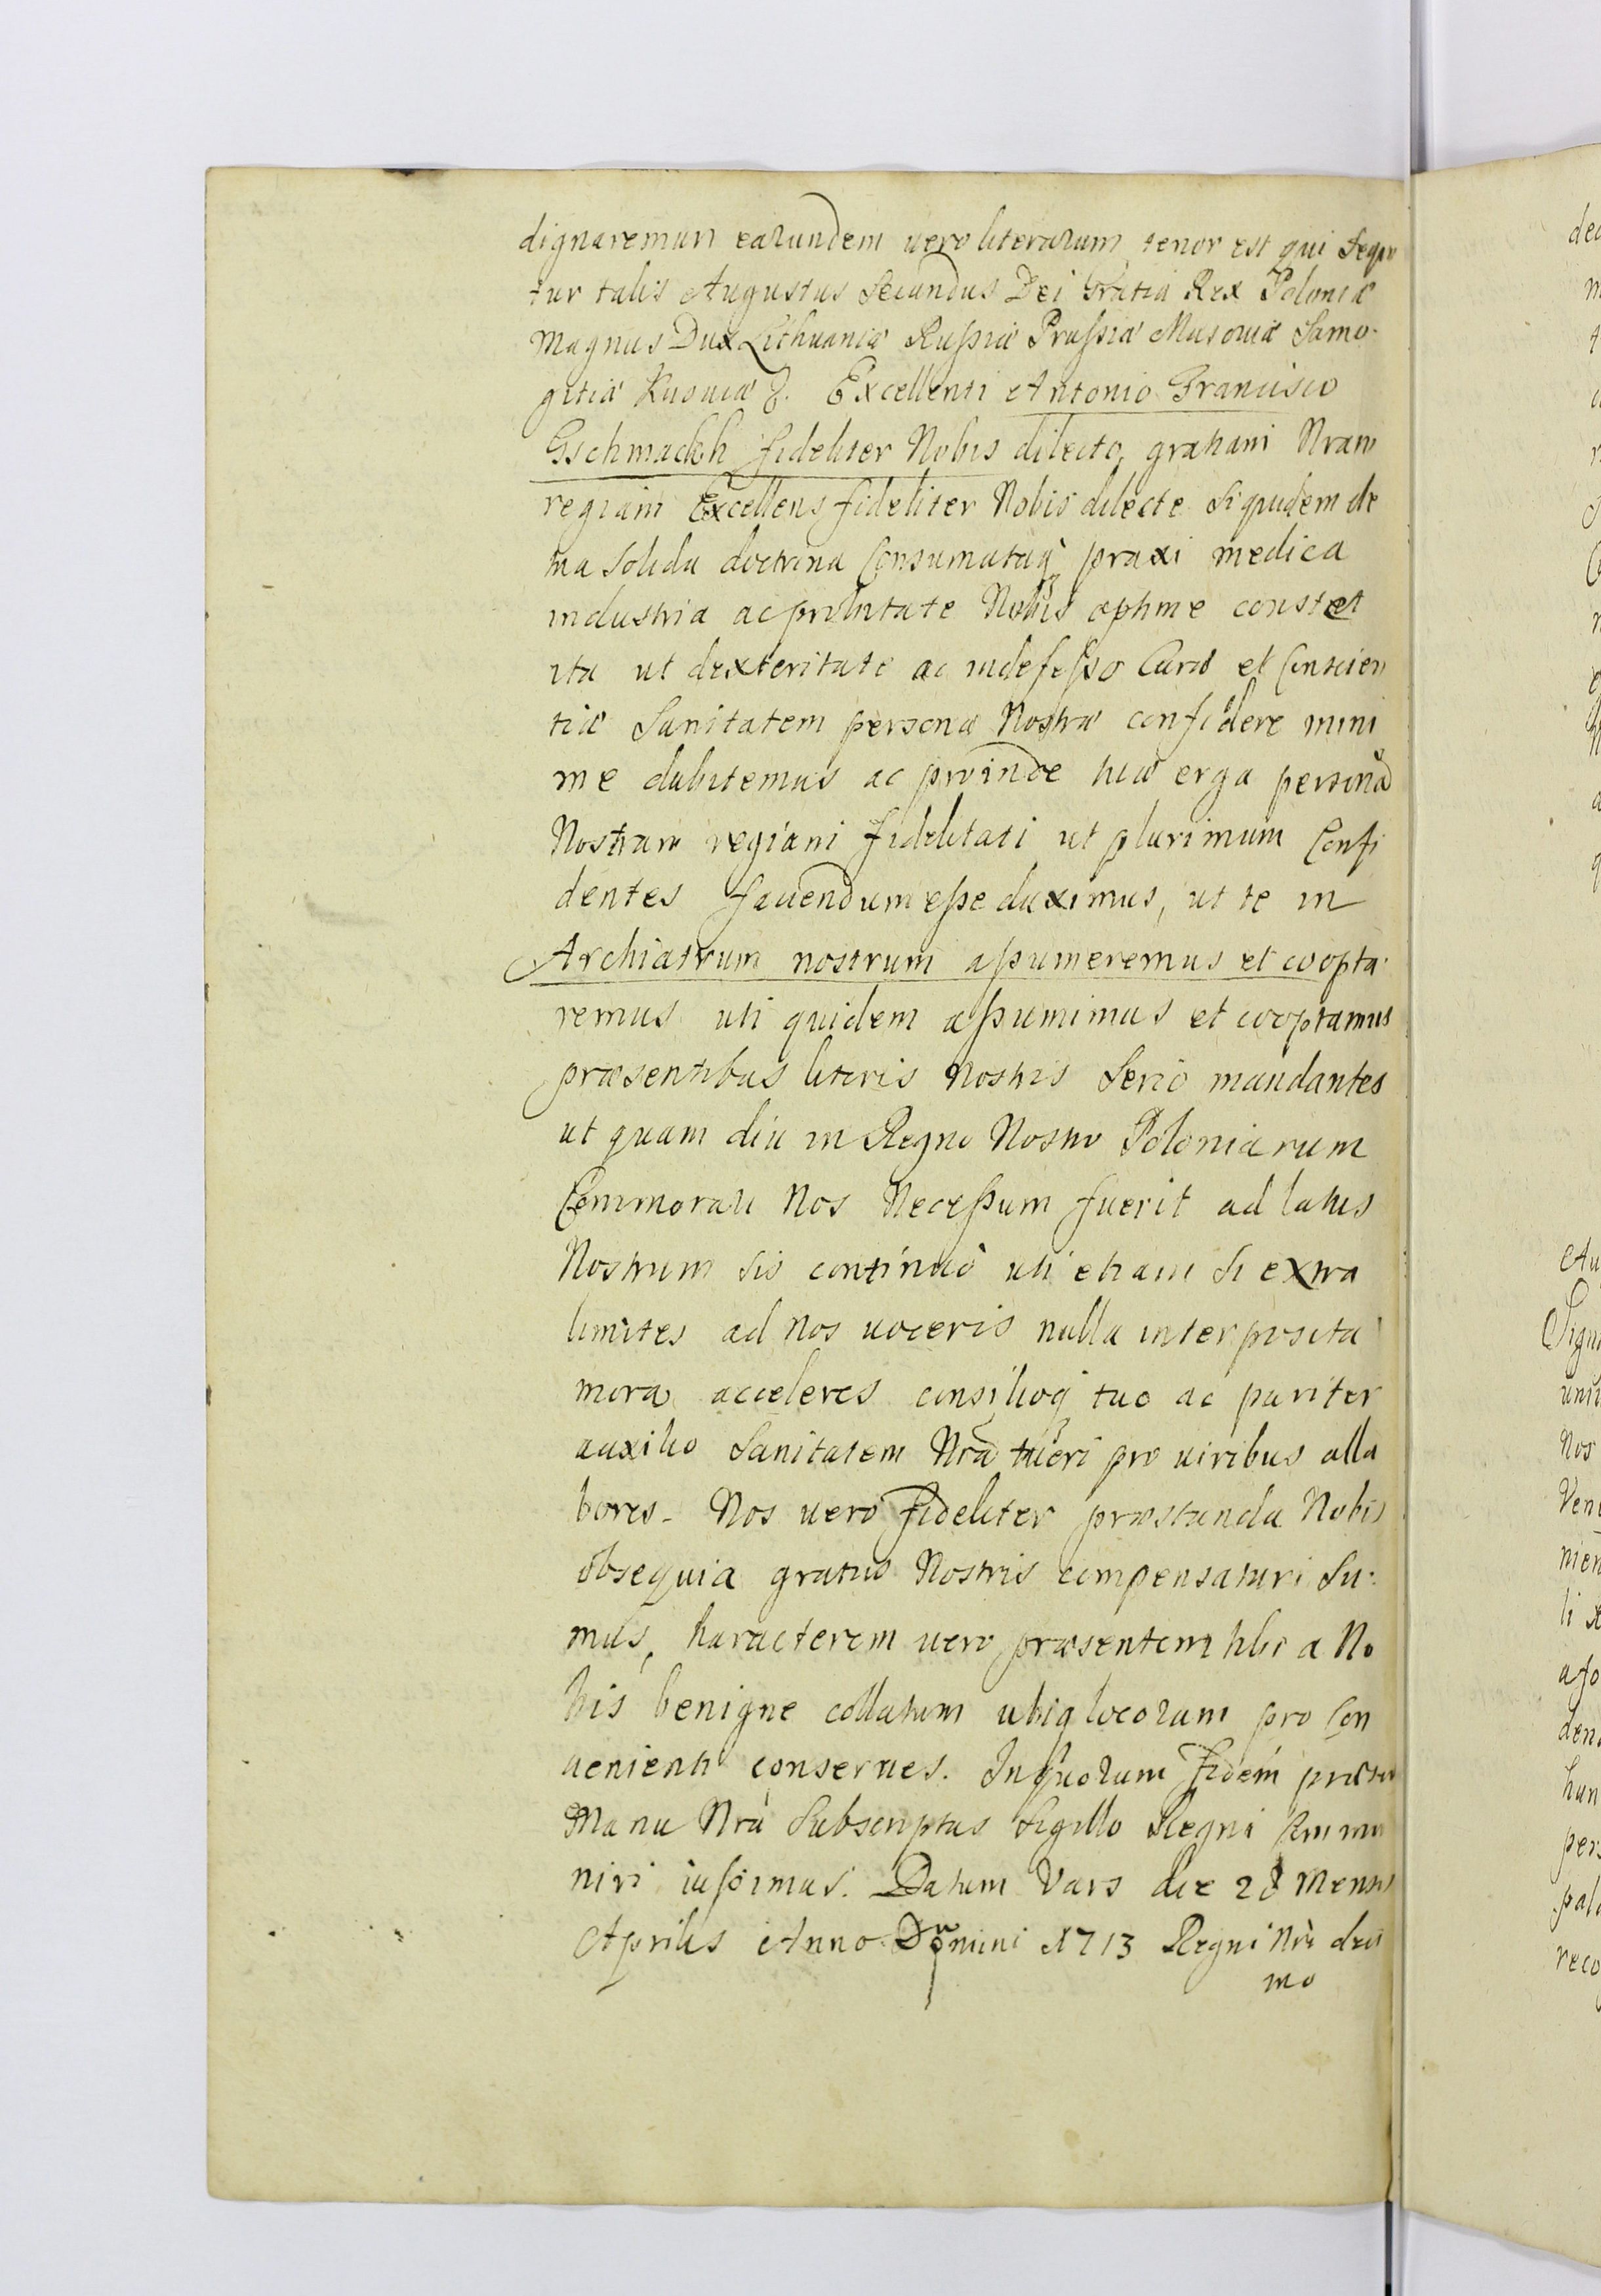 dignaremur earundem vero literarum tenor est qui Sequi
tur talis Augustus Secundus Dei Gratia Rex Poloniæ
Magnus Dux Lithuaniæ Russiæ Prussiæ Masoviæ Samo-
gitiæ Kijoviæ &. Excellenti Antonio Francisco
Gschmackh fideliter Nobis dilecto gratiam Nram
regiam Excellens fideliter Nobis dilecte Siquidem de
tua Solida doctrina Consumataq praxi medica
industria ac probitate Nobis optime constet
ita ut dexteritate ac indefesso Curæ et Conscien
tiæ Sanitatem personæ Nostræ confidere mini
me dubitemus ac proinde tuæ erga personã
Nostram regiam fidelitati ut plurimum Confi
dentes favendum esse duximus, ut te in
Archiatrum nostrum assumeremus et coopta-
remus uti quidem assumimus et cooptamus
præsentibus literis Nostris Serio mandantes
ut quam diu in Regno Nostro Poloniarum
Commorari Nos Necessum fuerit ad latus
Nostrum sis continuò uti etiam Si extra
limites ad Nos voceris nulla interposita
mora acceleres consilioq tuo ac pariter
auxilio Sanitatem Nrã tueri pro viribus alla
bores. Nos vero fideliter præstanda Nobis
obsequia gratiis Nostris compensaturi Su:
mus, haracterem vero præsentem tibi a No
bis benigne collatum ubiq locorum pro Con
venienti conserves. In quorum fidem præsen
Manu Nrã Subscriptas Sigillo Regni Commu
niri iussimus. Datum Vars die 28 Mensis
Aprilis Anno Domini 1713 Regni Nri deci
mo